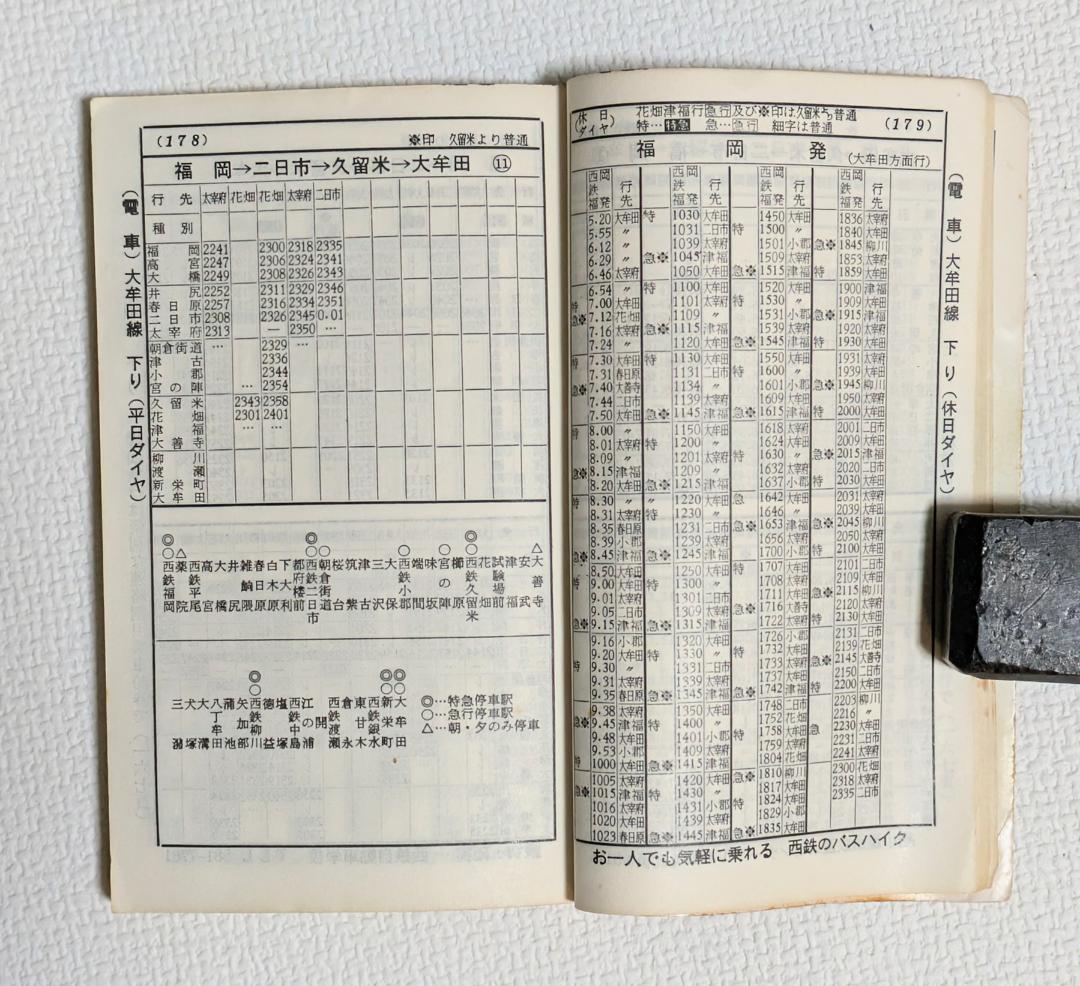 (178)
※印 久留米より普通
福 岡→二日市→久留米→大牟田 ⑪
(電 車) 大牟田線 下り (平日ダイヤ)
行 先 太宰府 花畑 花畑 太宰府 二日市
種 別
福 岡 2241 2300 2318 2335
高 宮 2247 2306 2324 2341
大 橋 2249 2308 2326 2343
井 尻 2252 2311 2329 2346
春 日 原 2257 2316 2334 2351
二 日 市 2308 2326 2345 0.01
太 宰 府 2313 — 2350 …
朝倉街道 … 2329 …
津 古 2336
小 郡 2344
宮 の 陣 … 2354
久 留 米 2343 2358
花 畑 2301 2401
津 福 … …
大 善 寺
柳 川
渡 瀬
新 栄 町
大 牟 田
◎ ◎ ◎
○△ ○○ ○ ○ ○ △
西鉄福岡 薬院 西鉄平尾 高宮 大橋 井尻 雑餉隈 春日原 白木原 下大利 都府楼前 西鉄二日市 朝倉街道 桜台 筑紫 津古 三沢 大保 西鉄小郡 端間 味坂 宮の陣 櫛原 西鉄久留米 花畑 試験場前 津福 安武 大善寺
◎ ◎◎
○ ○○
三潴 犬塚 大溝 八丁牟田 蒲池 加部 西鉄柳川 徳益 塩塚 西鉄中島 江の浦 開 西鉄渡瀬 倉永 東甘木 西鉄銀水 新栄町 大牟田
◎…特急停車駅
○…急行停車駅
△…朝・夕のみ停車
(休 日 ダイヤ)
花畑津福行急行及び※印は久留米より普通
特…特急 急…急行 細字は普通
(179)
福 岡 発 (大牟田方面行)
(電 車) 大牟田線 下り (休日ダイヤ)
西鉄福岡発 行先 西鉄福岡発 行先 西鉄福岡発 行先 西鉄福岡発 行先
5.20 大牟田 特 1030 大牟田 1450 大牟田 1836 太宰府
5.55 〃 1031 二日市 特 1500 〃 1840 大牟田
6.12 〃 1039 太宰府 1501 小郡 急※ 1845 柳川
6.29 〃 急※ 1045 津福 1509 太宰府 1853 太宰府
6.46 太宰府 1050 大牟田 急※ 1515 津福 特 1859 大牟田
6.54 〃 特 1100 大牟田 1520 大牟田 1900 津福
特 7.00 大牟田 1101 太宰府 特 1530 〃 1909 大牟田
急※ 7.12 花畑 1109 〃 1531 小郡 急※ 1915 津福
7.16 太宰府 急※ 1115 津福 1539 太宰府 1920 太宰府
7.24 〃 1120 大牟田 急※ 1545 津福 特 1930 大牟田
特 7.30 大牟田 特 1130 大牟田 1550 大牟田 1931 太宰府
7.31 春日原 1131 二日市 特 1600 〃 1939 大牟田
急※ 7.40 大善寺 1134 〃 1601 小郡 急※ 1945 柳川
7.44 二日市 1139 太宰府 1609 太宰府 1950 太宰府
7.50 大牟田 急※ 1145 津福 急※ 1615 津福 特 2000 大牟田
特 8.00 〃 1150 大牟田 1618 太宰府 2001 二日市
8.01 太宰府 特 1200 〃 1624 大牟田 2009 大牟田
8.09 〃 1201 太宰府 特 1630 〃 急※ 2015 津福
急※ 8.15 津福 1209 〃 1632 太宰府 2020 二日市
8.20 大牟田 急※ 1215 津福 1637 小郡 特 2030 大牟田
特 8.30 〃 〃 1220 大牟田 急 1642 大牟田 2031 太宰府
8.31 太宰府 特 1230 〃 1646 〃 2039 大牟田
8.35 春日原 1231 二日市 急※ 1653 津福 急※ 2045 柳川
8.39 小郡 1239 太宰府 1656 太宰府 2050 太宰府
急※ 8.45 津福 急※ 1245 津福 1700 小郡 特 2100 大牟田
8.50 大牟田 1250 大牟田 特 1707 大牟田 2101 二日市
特 9.00 〃 特 1300 〃 1708 〃 2109 大牟田
9.01 太宰府 1301 二日市 1711 大牟田 急※ 2115 津福
9.05 二日市 1309 太宰府 急※ 1716 大善寺 2120 太宰府
急※ 9.15 津福 急※ 1315 津福 1722 太宰府 特 2130 大牟田
9.16 小郡 1320 大牟田 1726 小郡 2131 二日市
9.20 大牟田 特 1330 〃 1732 大牟田 2139 花畑
特 9.30 〃 1331 二日市 1733 太宰府 急※ 2145 大善寺
9.31 太宰府 1339 太宰府 1737 小郡 2150 二日市
9.35 春日原 急※ 1345 津福 急※ 1742 津福 特 2200 大牟田
9.38 太宰府 1350 大牟田 1748 二日市 2203 柳川
急※ 9.45 津福 特 1400 〃 1752 花畑 2216 〃
9.48 大牟田 1401 小郡 特 1758 大牟田 急 2230 大牟田
9.53 小郡 1409 太宰府 1759 太宰府 2231 二日市
特 1000 大牟田 急※ 1415 津福 1804 花畑 2241 太宰府
1005 太宰府 1420 大牟田 急※ 1810 柳川 2300 花畑
急※ 1015 津福 特 1430 〃 1817 大牟田 2318 太宰府
1016 太宰府 1431 小郡 特 1824 大牟田 2335 二日市
1020 大牟田 1439 太宰府 1829 小郡
1023 春日原 急※ 1445 津福 急※ 1835 大牟田
お一人でも気軽に乗れる 西鉄のバスハイク